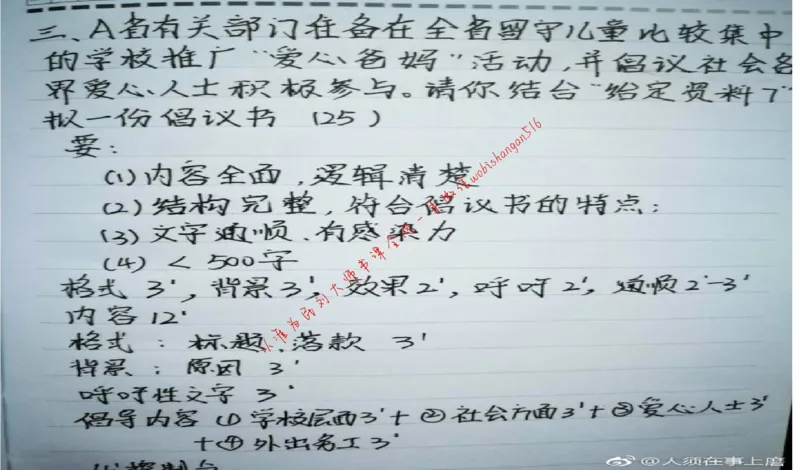 三、A省有关部门准备在全省留守儿童比较集中
的学校推广“爱心爸妈”活动,并倡议社会各
界爱心人士积极参与。请你结合“给定资料7”
拟一份倡议书 (25)
要:
(1)内容全面,逻辑清楚
(2)结构完整,符合倡议书的特点;
(3)文字通顺、有感染力
(4)<500字
格式 3',背景3',效果2',呼吁2',通顺2'-3'
内容12'
格式:标题、落款 3'
背景:原因 3'
呼吁性文字 3'
倡导内容 (1)学校层面3'+②社会方面3'+③爱心人士3'
+④外出务工3'
wobishangan516
@人须在事上磨